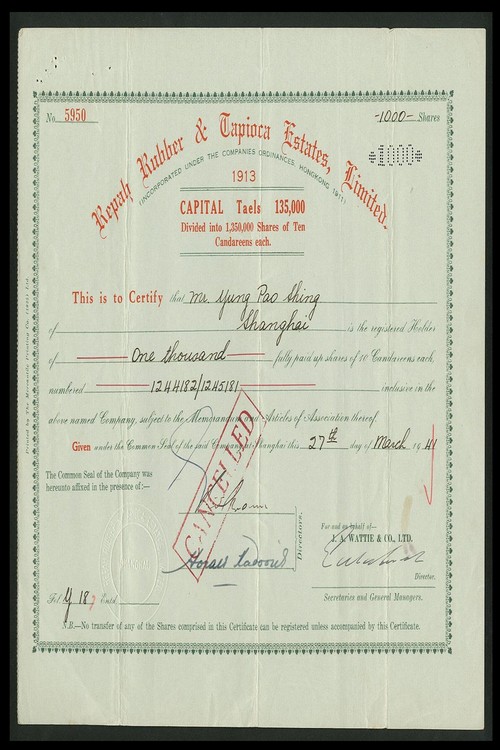 No. 5950
-1000- Shares
*1000*
Repah Rubber & Tapioca Estates, Limited.
(INCORPORATED UNDER THE COMPANIES ORDINANCES, HONGKONG 1911)
1913
CAPITAL Taels 135,000
Divided into 1,350,000 Shares of Ten
Candareens each.
This is to Certify that Mr. Yung Pao Shing
of Shanghai is the registered Holder
of One thousand fully paid up shares of 10 Candareens each,
numbered 1244182/1245181 inclusive in the
above named Company, subject to the Memorandum and Articles of Association thereof.
Given under the Common Seal of the said Company at Shanghai this 27th day of March 1941
The Common Seal of the Company was
hereunto affixed in the presence of:—
CANCELLED
Directors.
For and on behalf of—
J. A. WATTIE & CO., LTD.
Director.
Secretaries and General Managers.
Fol. Y 18 Entd.
N.B.—No transfer of any of the Shares comprised in this Certificate can be registered unless accompanied by this Certificate.